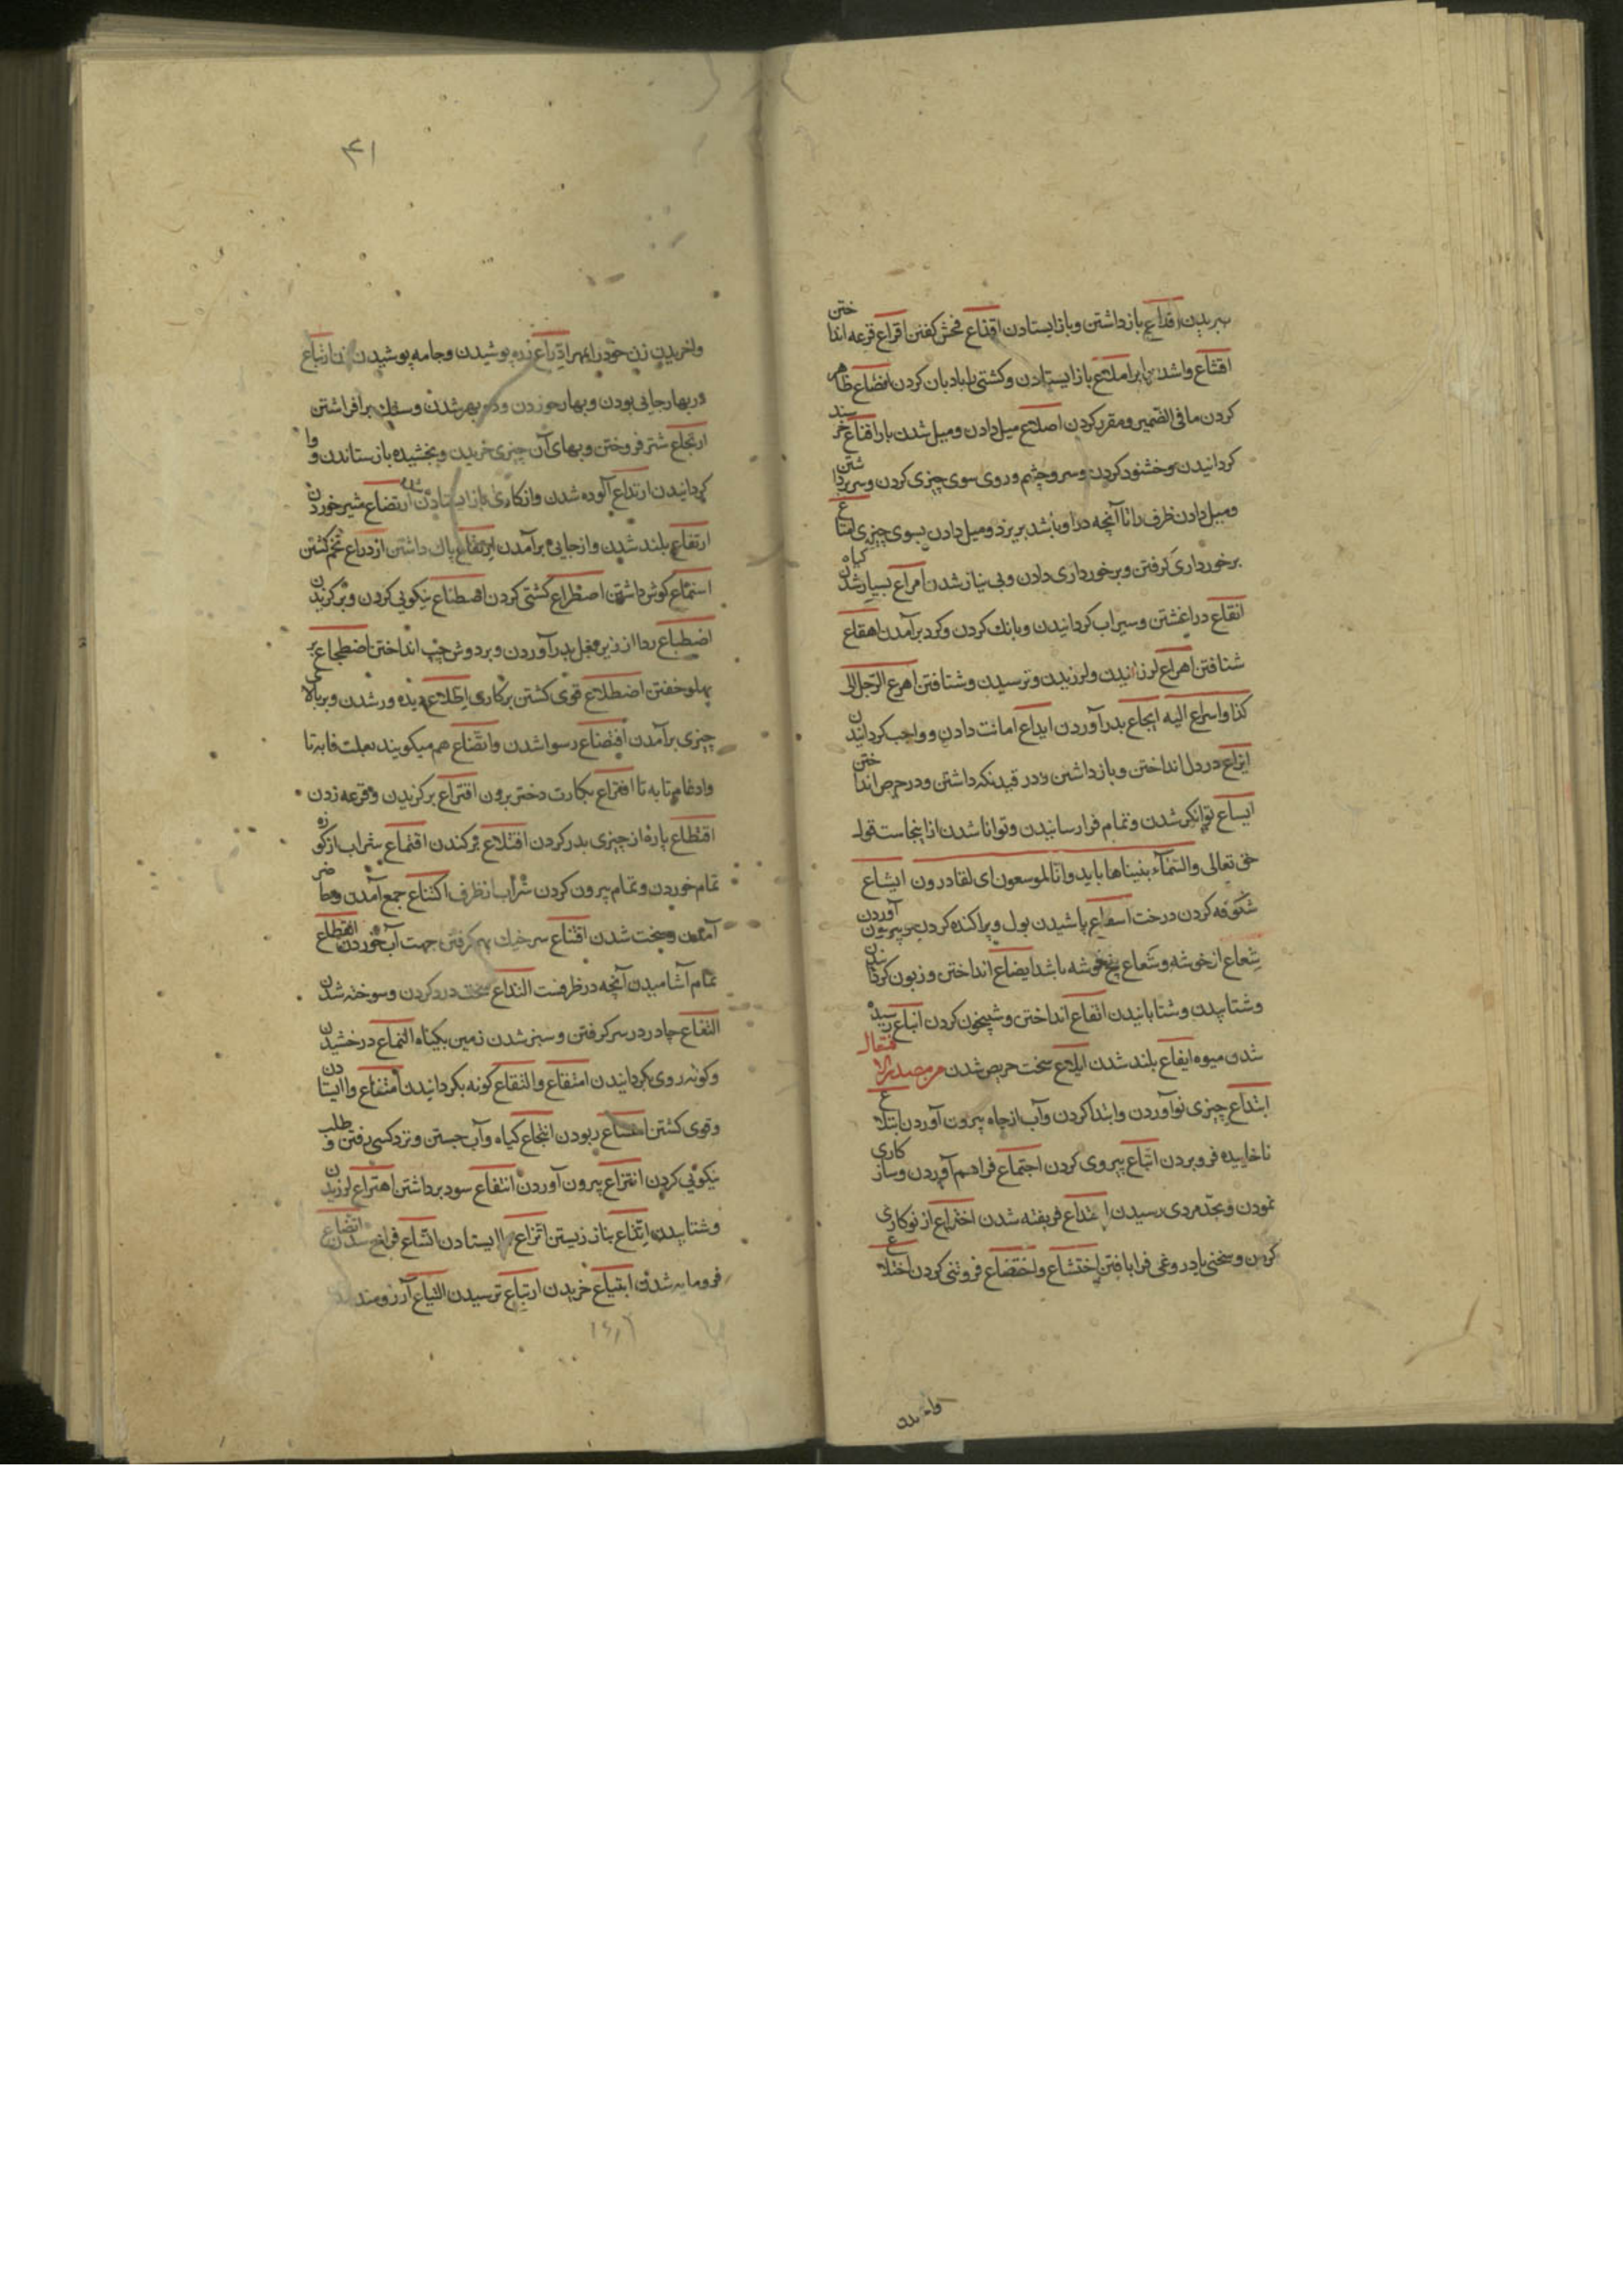 ببریدن اقداع بازداشتن و باز ایستادن اقذاع فحش کفتن اقراع قرعه انداختن
اقشاع واشدن ابر املاع باز ایستادن و کشتی را بادبان کردن افضاع ظاهر
کردن ما فی الضمیر و مقرر کردن اصلاع میل دادن و میل شدن بار اقناع خرسند
کردانیدن و خشنود کردن و سر و چشم و روی سوی چیزی کردن و سر برداشتن
و میل دادن ظرف را تا آنچه در او باشد بریزد و میل دادن بسوی چیزی امتاع
برخورداری کرفتن و برخورداری دادن و بی نیاز شدن امراع بسیار شدن کیاه
انقاع در اغشتن و سیراب کردانیدن و بانك کردن و کرد برآمدن اهقاع
شتافتن اهراع لرزانیدن و لرزیدن و ترسیدن و شتافتن اهرع الرجل الی
کذا و اسراع الیه ایجاع بدرد آوردن ایداع امانت دادن و واجب کردانیدن
ایزاع در دل انداختن و بازداشتن و در قید نکه داشتن و در حرص انداختن
ایساع توانکر شدن و تمام فرا رسانیدن و توانا شدن از اینجاست قول
حق تعالی والسمآء بنیناها باید وانا لموسعون ای لقادرون ایشاع
شکوفه کردن درخت پاشیدن بول و پراکنده کردن و بیرون آوردن
شعاع از خوشه و شعاع یخ خوشه باشد ایضاع انداختن و زبون کردانیدن
و شتاپیدن و شتابانیدن ایقاع انداختن و شبیخون کردن ایناع رسیده
شدن میوه ایفاع بلند شدن ایلاع سخت حریص شدن من مصدر الافتعال
ابتداع چیزی نو آوردن و ابتدا کردن و آب از چاه بیرون آوردن ابتلاع
ناخاییده فرو بردن اتباع پیروی کردن اجتماع فراهم آوردن و ساز کاری
نمودن و بحد مردی رسیدن اختداع فریفته شدن اختراع از نو کاری
کردن و سخنی یا دروغی فرا بافتن اختشاع و اختضاع فروتنی کردن اختلاع
واخریدن
۴۱
واخریدن زن خود را بمهر ادراع زره پوشیدن و جامه پوشیدن زن ارتباع
در بهار جائی بودن و بهار خوردن و فربه شدن و سنك برافراشتن
ارتجاع شتر فروختن و ببهای آن چیزی خریدن و بخشیده باز ستاندن و وا
کردانیدن ارتداع آلوده شدن و از کاری باز ایستادن ارتضاع شیر خوردن
ارتفاع بلند شدن و از جایی برآمدن ارتقاع باك داشتن ازدراع تخم کشتن
استماع کوش داشتن اصطراع کشتی کردن اصطناع نیکویی کردن و برکزیدن
اضطباع ردا از زیر بغل بدر آوردن و بر دوش چپ انداختن اضطجاع بر
پهلو خفتن اضطلاع قوی کشتن بر کاری اطلاع دیده ور شدن و بر بالای
چیزی برآمدن افتضاع رسوا شدن و اتضاع هم میکویند بعلت فا به تا
و ادغام تا به تا افتراع بکارت دختر بردن اقتراع برکزیدن و قرعه زدن
اقتطاع پاره از چیزی بدر کردن اقتلاع برکندن اقتماع شراب از کوزه
تمام خوردن و تمام بیرون کردن شراب از ظرف اکتناع جمع آمدن و حاضر
آمدن و سخت شدن اقتناع سر خیك بهم کرفتن جهت آب خوردن التطاع
تمام آشامیدن آنچه در ظرفست التذاع سخت درد کردن و سوخته شدن
التفاع چادر در سر کرفتن و سبز شدن زمین بکیاه التماع درخشیدن
و کونه روی بکردانیدن امتقاع و التقاع کونه بکردانیدن امتناع وا ایستادن
و قوی کشتن ربودن انتجاع کیاه و آب جستن و نزد کسی رفتن و طلب
نیکوئی کردن انتزاع بیرون آوردن انتفاع سود برداشتن اهتزاع لرزیدن
و شتاپیدن اتداع بناز زیستن اتزاع وا ایستادن اتساع فراخ شدن اتضاع
فرومایه شدن ابتیاع خریدن ارتیاع ترسیدن التیاع آرزومند شدن